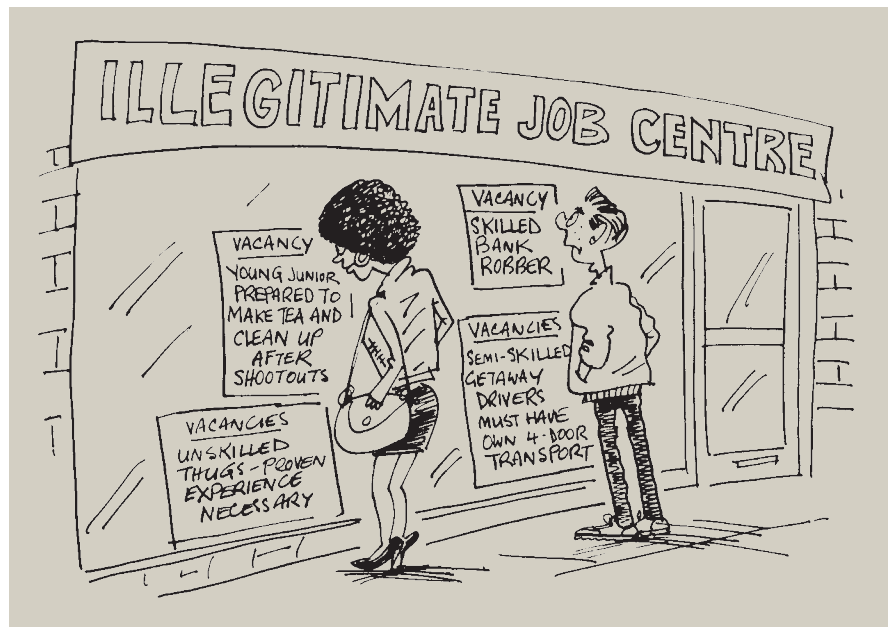 ILLEGITIMATE JOB CENTRE
VACANCY
YOUNG JUNIOR
PREPARED TO
MAKE TEA AND
CLEAN UP
AFTER
SHOOTOUTS
VACANCIES
UNSKILLED
THUGS - PROVEN
EXPERIENCE
NECESSARY
VACANCY
SKILLED
BANK
ROBBER
VACANCIES
SEMI-SKILLED
GETAWAY
DRIVERS
MUST HAVE
OWN 4-DOOR
TRANSPORT